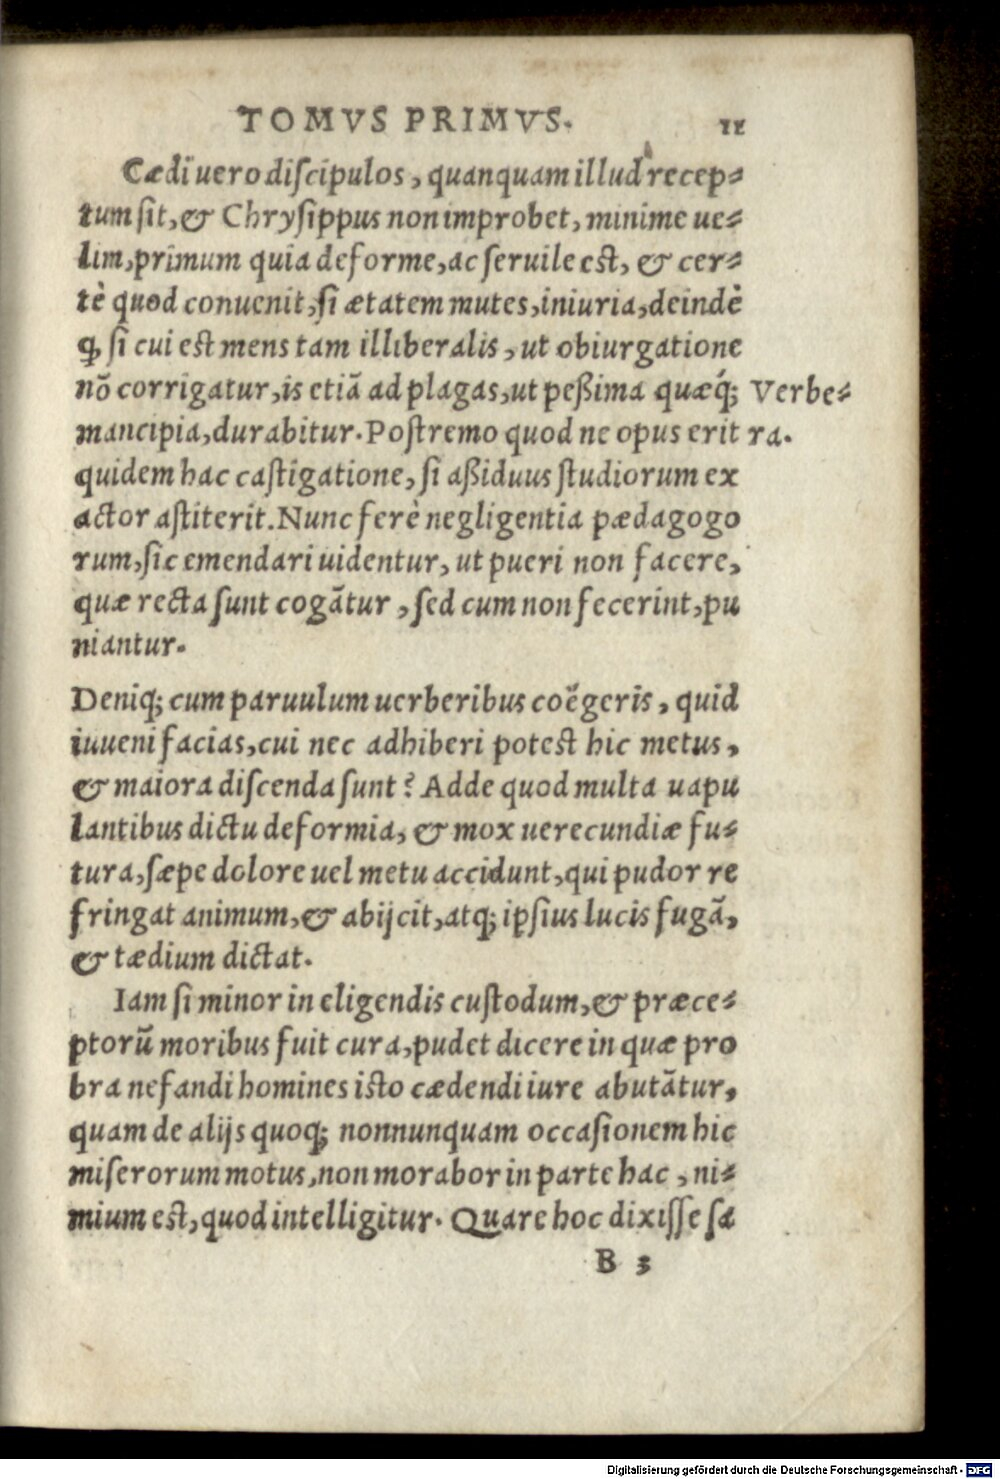 TOMVS PRIMVS. 11
Cædi uero discipulos, quanquam illud recep-
tum sit, & Chrysippus non improbet, minime ue-
lim, primum quia deforme, ac seruile est, & cer-
tè quod conuenit, si ætatem mutes, iniuria, deindè
ꝙ si cui est mens tam illiberalis, ut obiurgatione
nõ corrigatur, is etiã ad plagas, ut peßima quæq́; Verbe-
mancipia, durabitur. Postremo quod ne opus erit ra.
quidem hac castigatione, si aßiduus studiorum ex
actor astiterit. Nunc ferè negligentia pædagogo
rum, sic emendari uidentur, ut pueri non facere,
quæ recta sunt cogãtur, sed cum non fecerint, pu
niantur.
Deniq; cum paruulum uerberibus coëgeris, quid
iuueni facias, cui nec adhiberi potest hic metus,
& maiora discenda sunt? Adde quod multa uapu
lantibus dictu deformia, & mox uerecundiæ fu-
tura, sæpe dolore uel metu accidunt, qui pudor re
fringat animum, & abijcit, atq; ipsius lucis fugã,
& tædium dictat.
Iam si minor in eligendis custodum, & præce-
ptorũ moribus fuit cura, pudet dicere in quæ pro
bra nefandi homines isto cædendi iure abutãtur,
quam de alijs quoq; nonnunquam occasionem hic
miserorum motus, non morabor in parte hac, ni-
mium est, quod intelligitur. Quare hoc dixisse sa
B 3
Digitalisierung gefördert durch die Deutsche Forschungsgemeinschaft - DFG